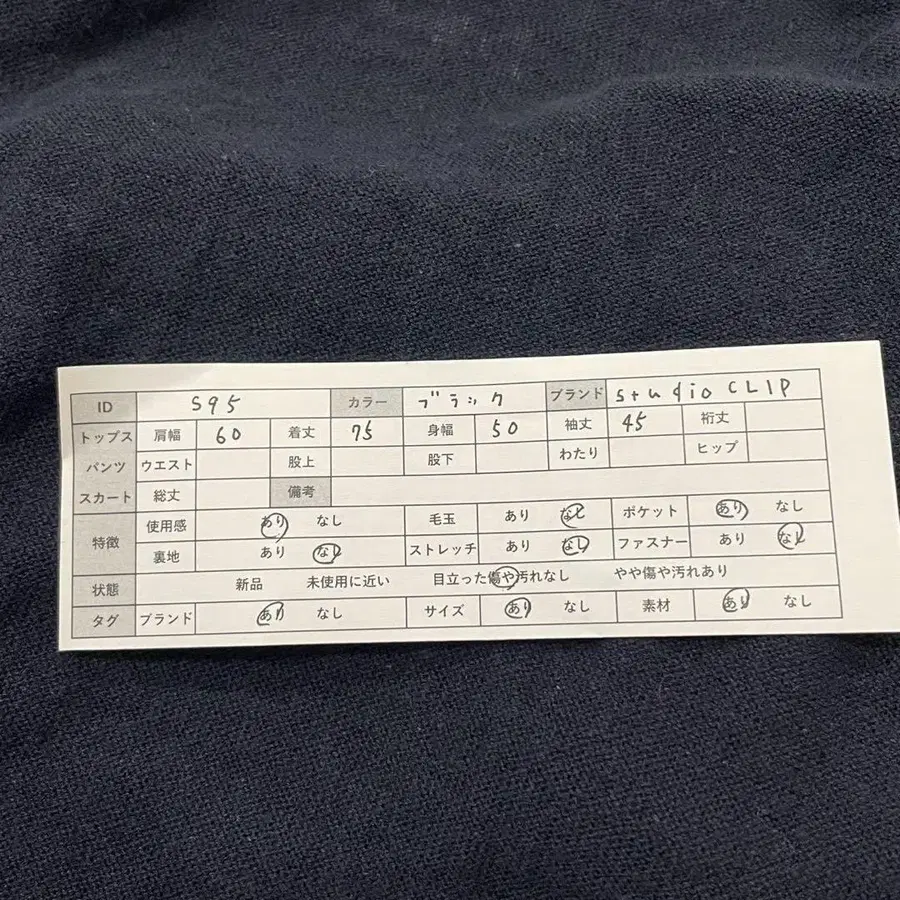 ID S95 カラー ブラック ブランド studio CLIP
トップス 肩幅 60 着丈 75 身幅 50 袖丈 45 裄丈
パンツ ウエスト 股上 股下 わたり ヒップ
スカート 総丈 備考
特徴 使用感 あり なし 毛玉 あり なし ポケット あり なし
裏地 あり なし ストレッチ あり なし ファスナー あり なし
状態 新品 未使用に近い 目立った傷や汚れなし やや傷や汚れあり
タグ ブランド あり なし サイズ あり なし 素材 あり なし